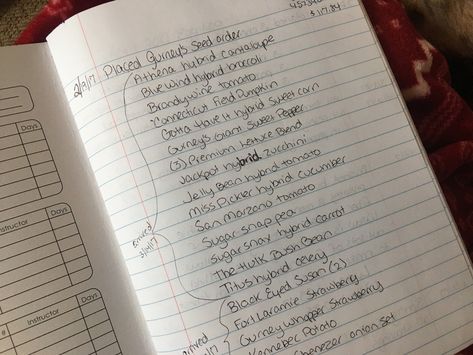 $117.84
2/7/17 Placed Gurney's Seed order
Athena hybrid cantaloupe
Blue wind hybrid broccoli
Brandywine tomato
Connecticut Field Pumpkin
Gotta Have It hybrid sweet corn
Gurney's Giant Sweet Pepper
(3) Premium Lettuce Blend
Jackpot hybrid zucchini
Jelly Bean hybrid tomato
Miss Pickler hybrid cucumber
San Marzano tomato
Sugar snap pea
Sugarsnax hybrid carrot
The Hulk Bush Bean
Titus hybrid celery
arrived
Black Eyed Susan (2)
Fort Laramie Strawberry
Gurney Whopper Strawberry
Kennebec Potato
Ebenezer onion set
arrived
Days
Instructor
Days
Instructor
Days